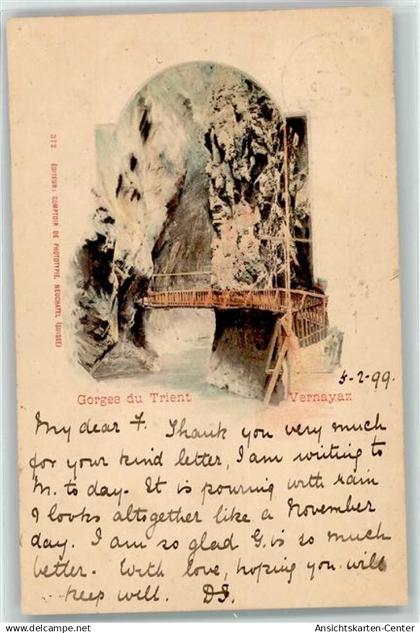 372 ÉDITEUR: COMPTOIR DE PHOTOTYPIE, NEUCHATEL (SUISSE)
Gorges du Trient
Vernayaz
5-2-99.
My dear F. Thank you very much
for your kind letter, I am writing to
M. to day. It is pouring with rain
I looks altogether like a November
day. I am so glad G. is so much
better. With love, hoping you will
keep well. D.J.
Ansichtskarten-Center